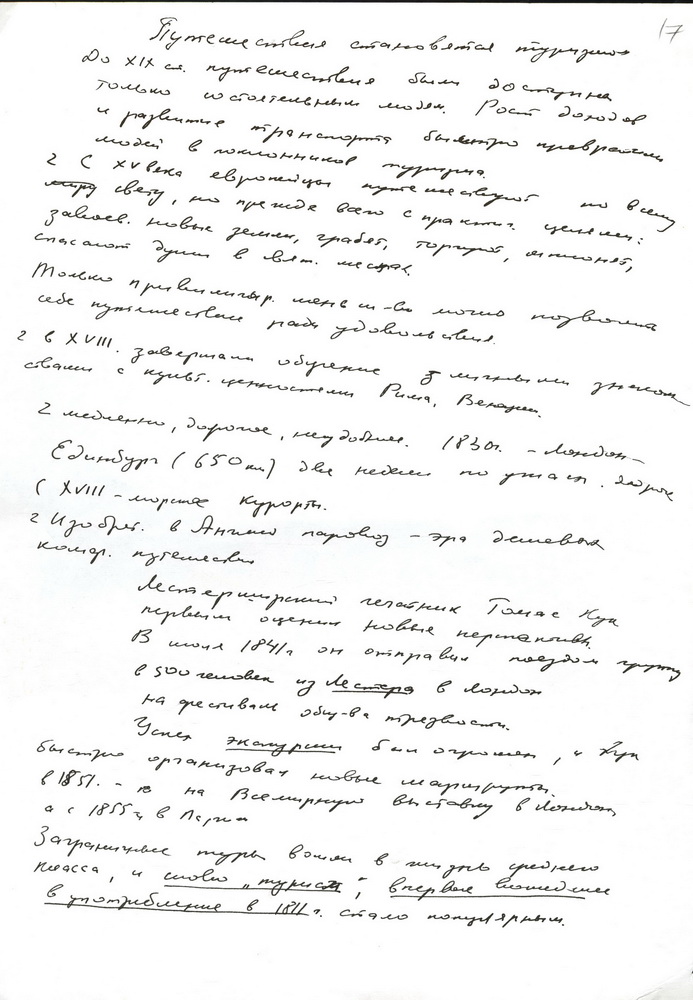 17
Путешествия становятся туризмом
До XIX ст. путешествия были доступны
только состоятельным людям. Рост доходов
и развитие транспорта быстро превратили
людей в поклонников туризма.
2 С XV века европейцы путешествуют по всему
миру свету, но прежде всего с практич. целями:
завоев. новые земли, грабят, торгуют, шпионят,
спасают души в свят. местах.
Только привилигир. меньш-во могло позволить
себе путешествие ради удовольствия.
2 в XVIII. завершали обучение личным знаком
ствами с культ. ценностями Рима, Венеции.
2 медленно, дорогое, неудобные. 1830г. – Лондон –
Единбург (650 км) две недели по ужасн. дороге
С XVIII – морские курорты.
2 Изобрет. в Англии паровоз – эра дешевых
комф. путешествий
Лестерширский печатник Томас Кук
первым оценил новые перспективы.
В июля 1841г он отправил поездом группу
в 500 человек из Лестера в Лондон
на фестиваль общ-ва трезвости.
Успех экскурсии был огромен, и Кук
быстро организовал новые маршруты.
в 1851. – на Всемирную выставку в Лондон,
а с 1855 г в Париж
Заграничные туры вошли в жизнь среднего
класса, и слово „турист", впервые вошедшее
в употребление в 1811 г. стало популярным.